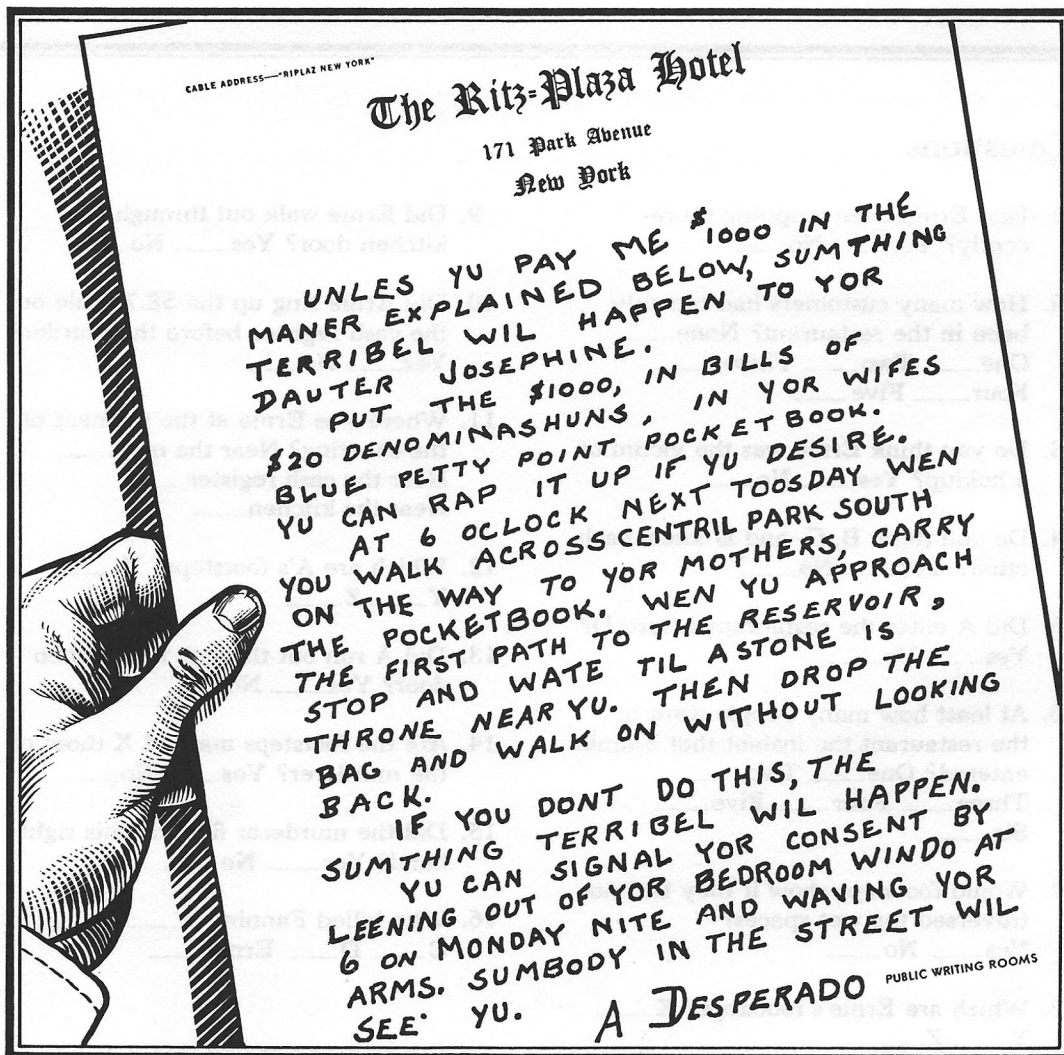 CABLE ADDRESS—"RIPLAZ NEW YORK"
The Ritz-Plaza Hotel
171 Park Avenue
New York
UNLES YU PAY ME $1000 IN THE
MANER EXPLAINED BELOW, SUMTHING
TERRIBEL WIL HAPPEN TO YOR
DAUTER JOSEPHINE.
PUT THE $1000, IN BILLS OF
$20 DENOMINASHUNS, IN YOR WIFES
BLUE PETTY POINT POCKETBOOK.
YU CAN RAP IT UP IF YU DESIRE.
AT 6 OCLOCK NEXT TOOSDAY WEN
YOU WALK ACROSS CENTRIL PARK SOUTH
ON THE WAY TO YOR MOTHERS, CARRY
THE POCKETBOOK. WEN YU APPROACH
THE FIRST PATH TO THE RESERVOIR,
STOP AND WATE TIL A STONE IS
THRONE NEAR YU. THEN DROP THE
BAG AND WALK ON WITHOUT LOOKING
BACK.
IF YOU DONT DO THIS, THE
SUMTHING TERRIBEL WIL HAPPEN.
YU CAN SIGNAL YOR CONSENT BY
LEENING OUT OF YOR BEDROOM WINDO AT
6 ON MONDAY NITE AND WAVING YOR
ARMS. SUMBODY IN THE STREET WIL
SEE YU.
A DESPERADO
PUBLIC WRITING ROOMS